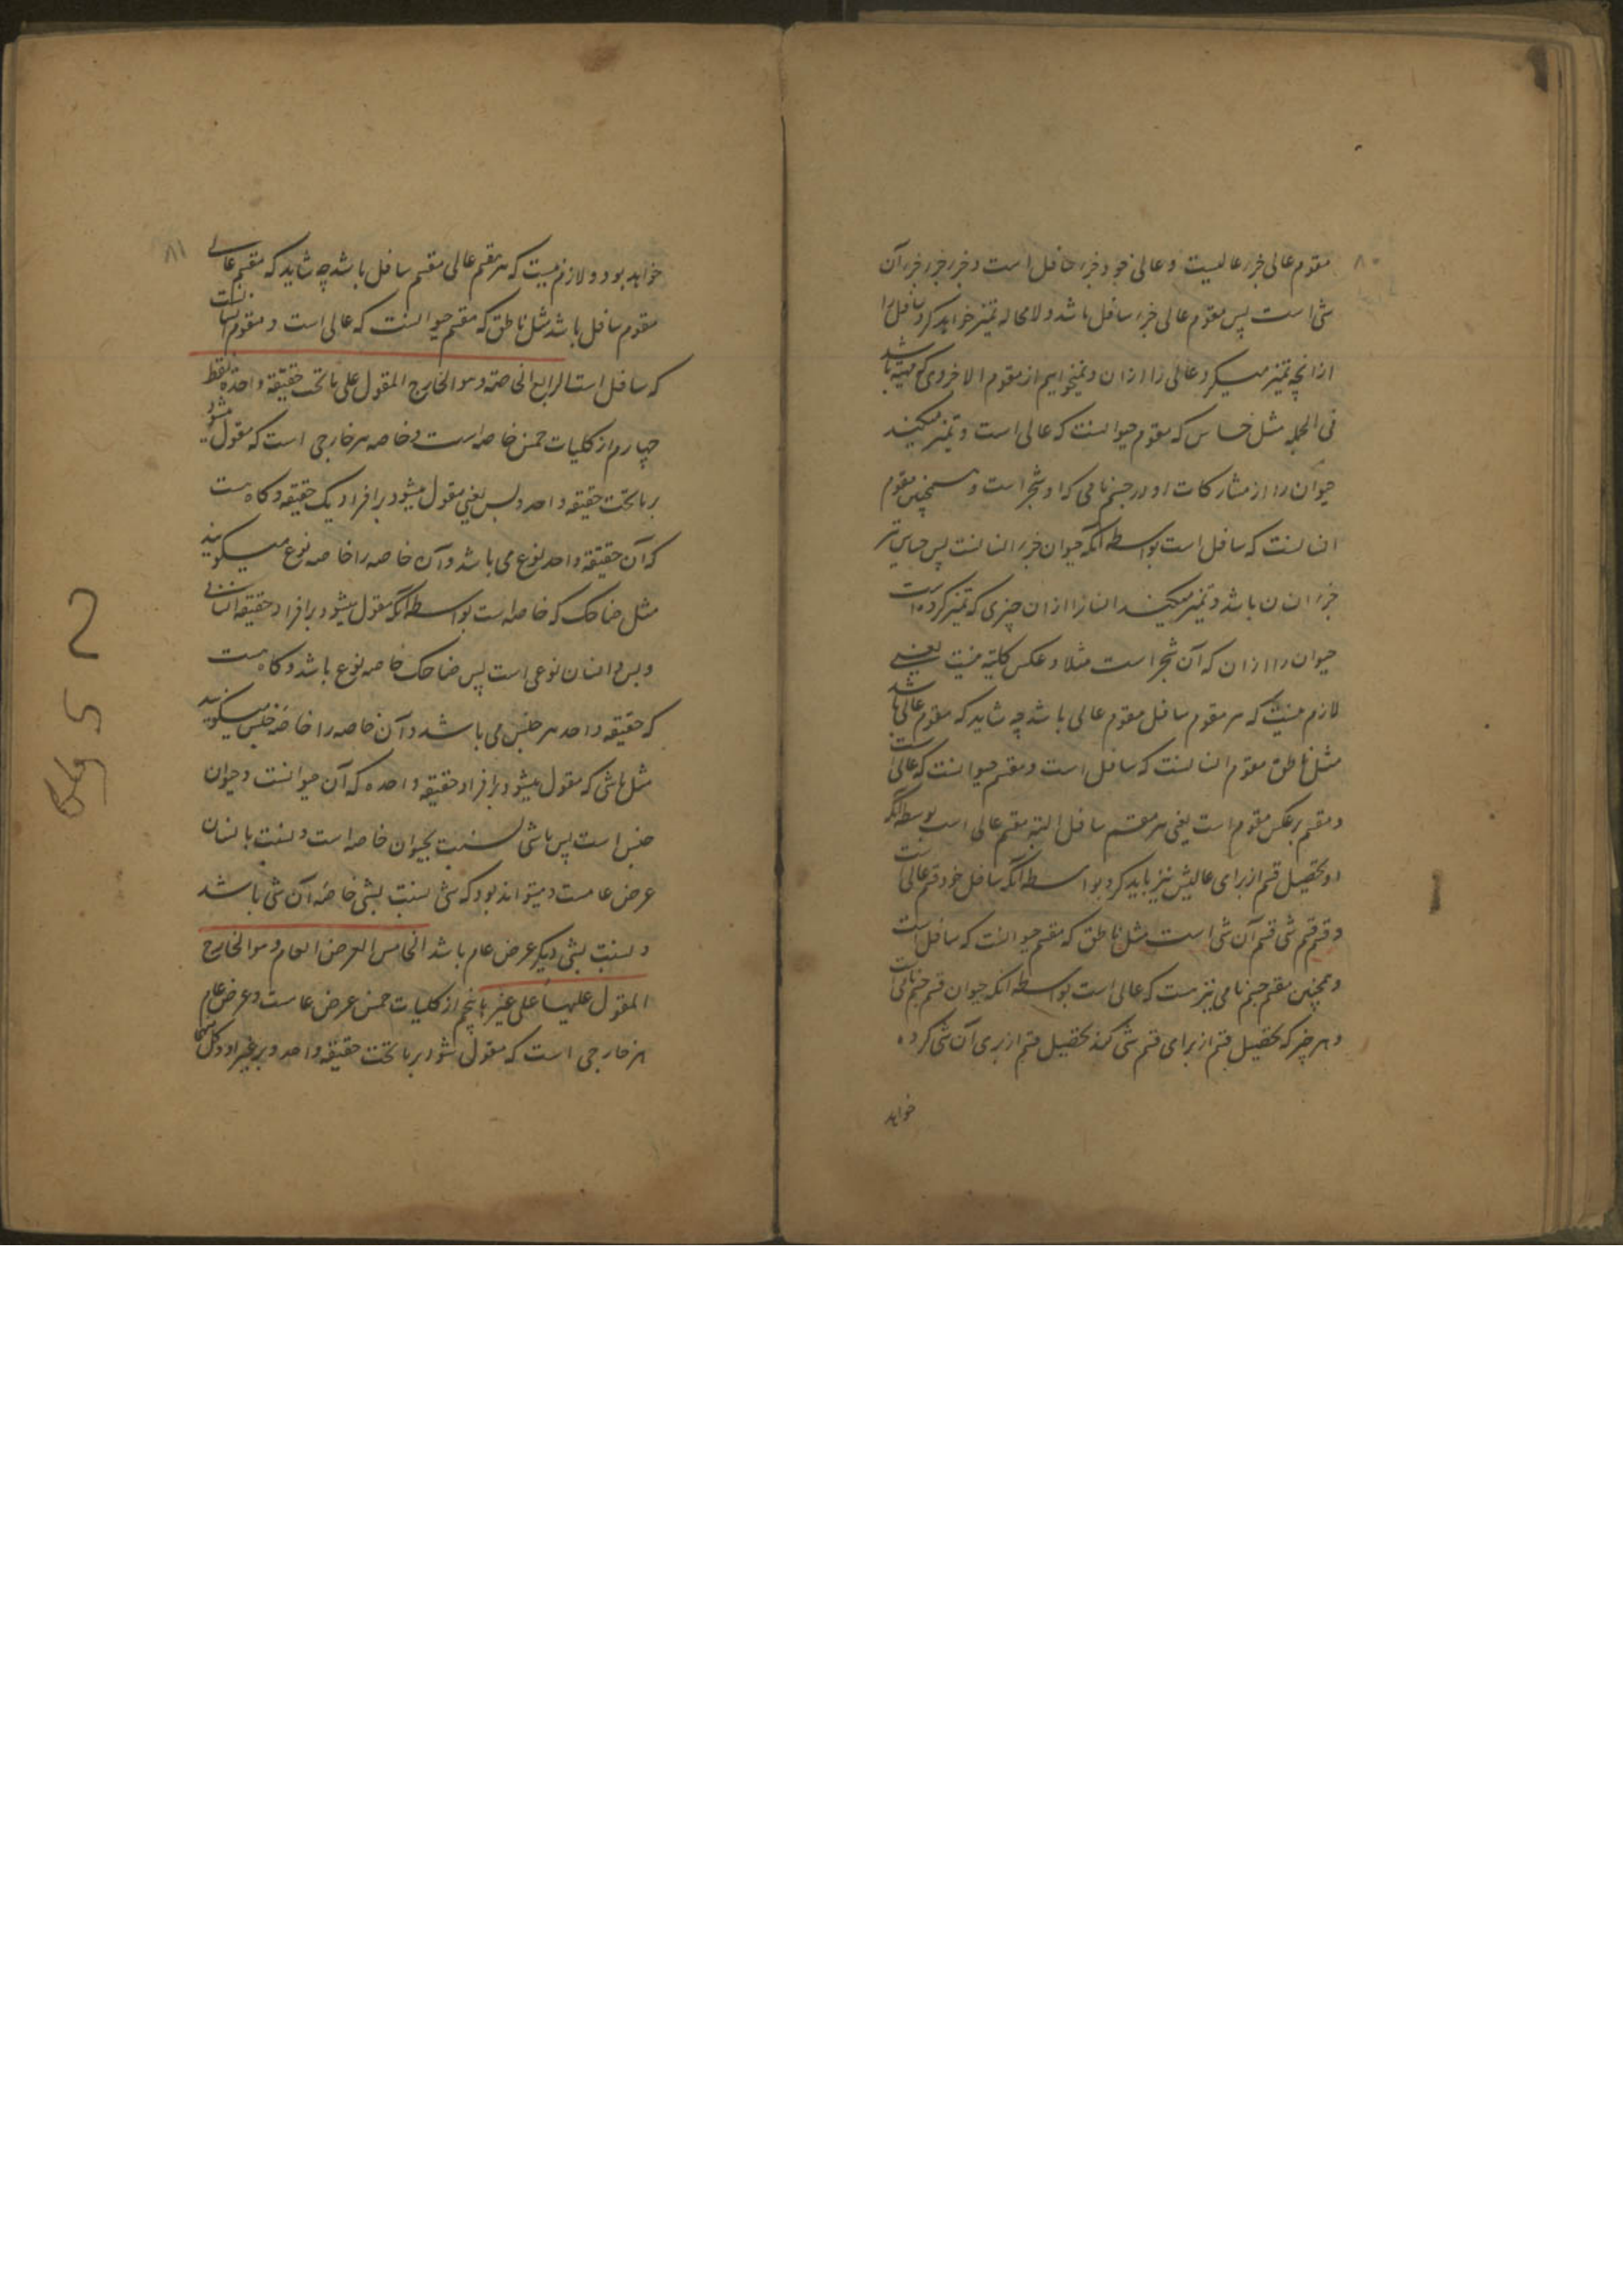 ۸۰
مقوم عالی جزء عالیست و عالی خود جزء سافل است و جزء جزء جزء آن
شی است پس مقوم عالی جزء سافل باشد و لامحاله تمیز خواهد کرد سافل را
از آنچه تمیز میکرد عالی را ازان و نمیخواهیم از مقوم الا جزوی که ممیز باشد
فی الجمله مثل حساس که مقوم حیوانست که عالی است و تمیز میکند
حیوان را از مشارکات او در جسم نامی که او شجر است و همچنین مقوم
انسانست که سافل است بواسطه آنکه حیوان جزء انسانست پس حساس نیز
جزء انسان باشد و تمیز میکند انسانرا ازان چیزی که تمیز کرده است
حیوان را ازان که آن شجر است مثلا و عکس کلیة نیست یعنی
لازم نیست که هر مقوم سافل مقوم عالی باشد چه شاید که مقوم عالی باشد
مثل ناطق مقوم انسانست که سافل است و مقسم حیوانست که عالی است
و مقسم برعکس مقوم است یعنی هر مقسم سافل البته مقسم عالی است بواسطه آنکه
او تحصیل قسم از برای عالیش نیز باید کرد بواسطه آنکه سافل خود قسم عالی است
و قسم قسم شی قسم آن شی است مثل ناطق که مقسم حیوانست که سافل است
و همچنین مقسم جسم نامی نیز هست که عالی است بواسطه آنکه حیوان قسم جسم نامی است
و هر چیز که تحصیل قسم از برای قسم شی کند تحصیل قسم از بری آن شی کرده
خواهد
۸۱
خواهد بود و لازم نیست که هر مقسم عالی مقسم سافل باشد چه شاید که مقسم عالی
مقوم سافل باشد مثل ناطق که مقسم حیوانست که عالی است و مقوم انسانست
که سافل است الرابع الخاصة و هو الخارج المقول علی ما تحت حقیقة واحدة فقط
چهارم از کلیات خمس خاصه است و خاصه هر خارجی است که مقول میشود
بر ما تحت حقیقه واحد و بس یعنی مقول میشود بر افراد یک حقیقه و کاه هست
که آن حقیقة واحد نوع می باشد و آن خاصه را خاصه نوع میکویند
مثل ضاحک که خاصه است بواسطه آنکه مقول میشود بر افراد حقیقه انسانی
و بس و انسان نوعی است پس ضاحک خاصه نوع باشد و کاه هست
که حقیقه واحد هر جنس می باشد و آن خاصه را خاصه جنس میکویند
مثل ماشی که مقول میشود بر افراد حقیقه واحده که آن حیوانست و حیوان
جنس است پس ماشی نسبت بحیوان خاصه است و نسبت بانسان
عرض عامست و میتواند بود که شی نسبت بشی خاصه آن شی باشد
و نسبت بشی دیکر عرض عام باشد الخامس العرض العام و هو الخارج
المقول علیها علی غیرها پنجم از کلیات خمس عرض عامست و عرض عام
هر خارجی است که مقول شود بر ما تحت حقیقه واحد و بر غیر او و کل منهما